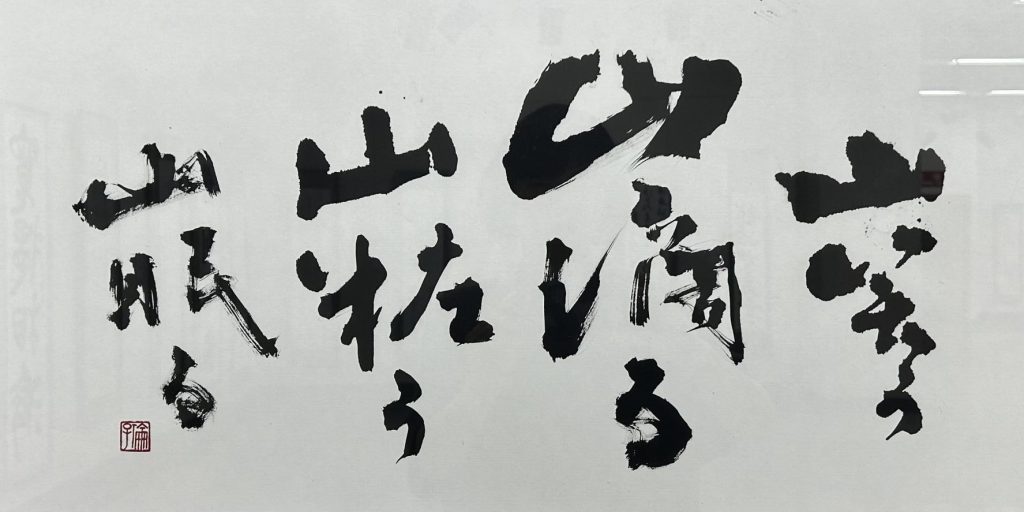 山笑う
山滴る
山粧う
山眠る